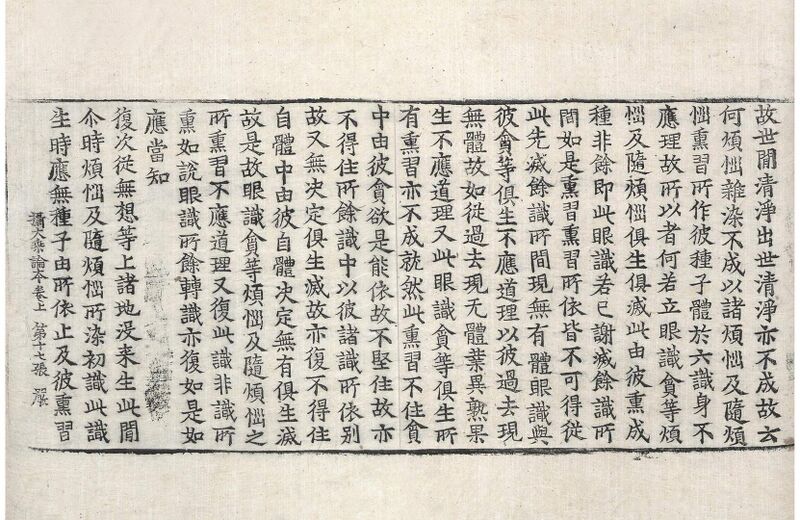 故世間清淨出世清淨亦不成故云
何煩惱雜染不成以諸煩惱及隨煩
惱熏習所作彼種子體於六識身不
應理故所以者何若立眼識貪等煩
惱及隨煩惱俱生俱滅此由彼熏成
種非餘即此眼識若已謝滅餘識所
間如是熏習熏習所依皆不可得從
此先滅餘識所間現無有體眼識與
彼貪等俱生不應道理以彼過去現
無體故如從過去現无體業異熟果
生不應道理又此眼識貪等俱生所
有熏習亦不成就然此熏習不住貪
中由彼貪欲是能依故不堅住故亦
不得住所餘識中以彼諸識所依別
故又無决定俱生滅故亦復不得住
自體中由彼自體决定無有俱生滅
故是故眼識貪等煩惱及隨煩惱之
所熏習不應道理又復此識非識所
熏如說眼識所餘轉識亦復如是如
應當知
復次從無想等上諸地没来生此間
尒時煩惱及隨煩惱所染初識此識
生時應無種子由所依止及彼熏習
攝大乘論本卷上 第十七張